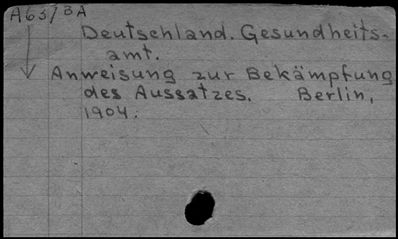 A637BA
Deutschland. Gesundheits-
amt.
Anweisung zur Bekämpfung
des Aussatzes. Berlin,
1904.